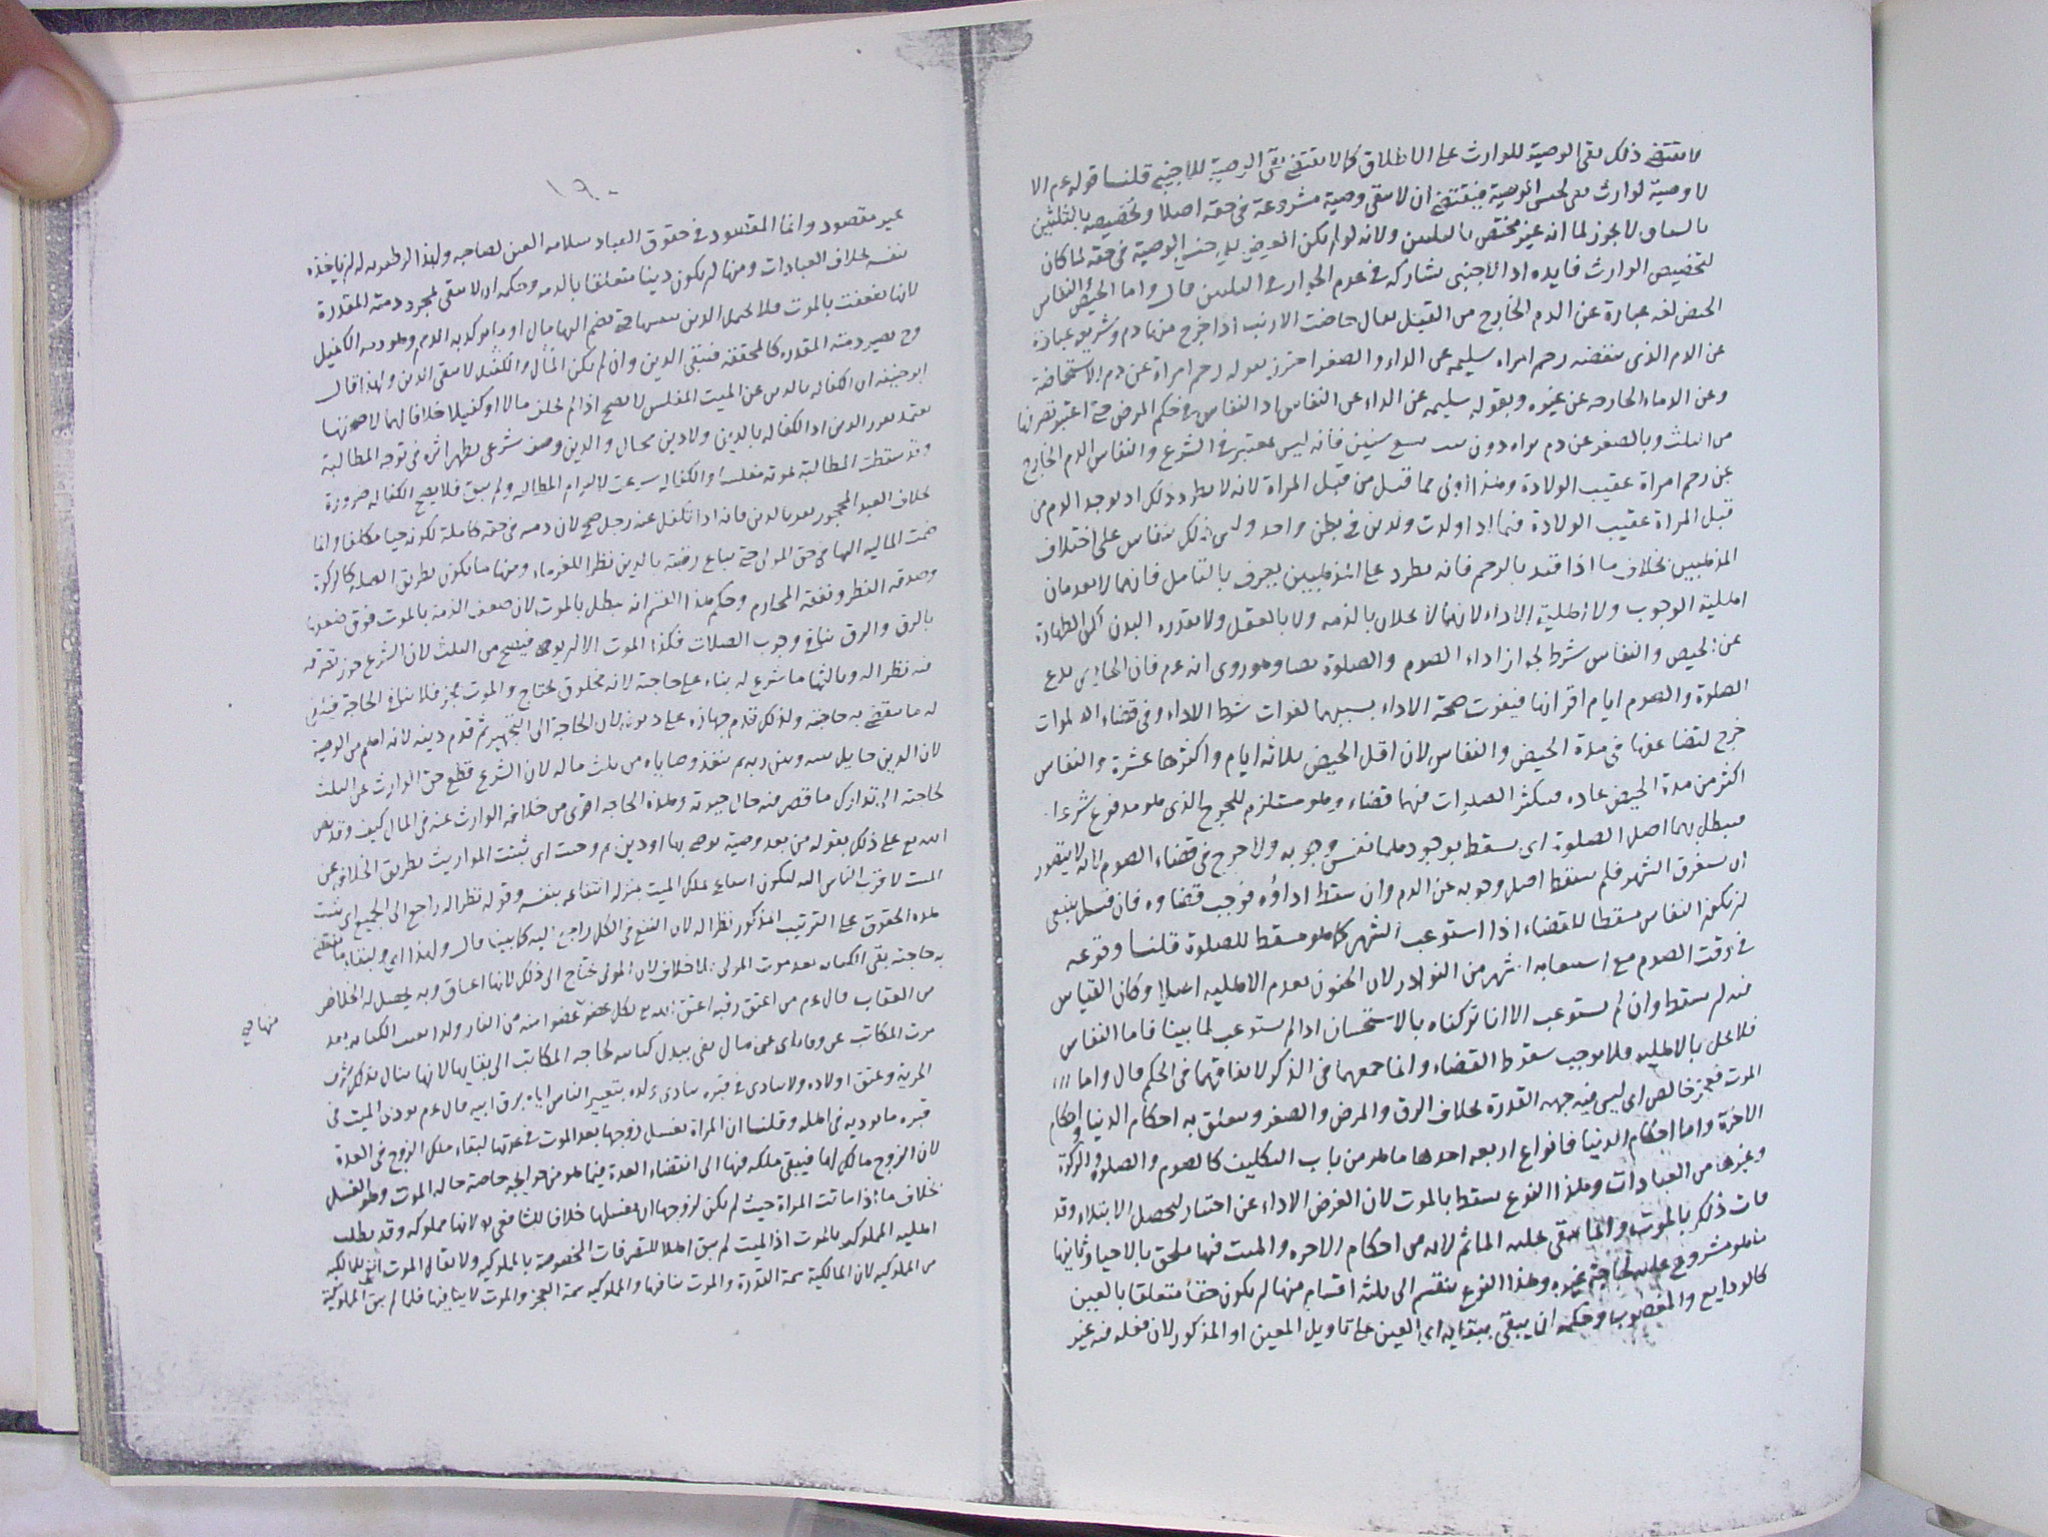 لا يقتضي ذلك نفى الوصية للوارث على الاطلاق كما لا يقتضي نفي الوصية للاجنبي قلنا قوله عم الا
لا وصية لوارث نفى لجنس الوصية فيقتضي ان لا يبقى وصية مشروعة في حقه اصلا وتخصيصه بالثلثين
لا يجوز لما انه غير مختص بالثلثين ولانه لو لم يكن جنس الوصية في حقه لما كان
لتخصيص الوارث فايدة اذ الاجنبي يشاركه في عدم الجواز في الثلثين قال واما الحيض والنفاس
الحيض لغة عبارة عن الدم الخارج من القبل يقال حاضت الارنب اذا خرج منها دم وشريعة عبارة
عن الدم الذي ينفضه رحم امراة سليمة عن الداء والصغر احترز بقوله رحم امراة عن دم الاستحاضة
وعن الدماء الخارجة عن غيره وبقوله سليمة عن الداء عن النفاس اذ النفاس في حكم المرض حتى اعتبر تصرفها
من الثلث وبالصغر عن دم تراه دون تسع سنين فانه ليس بمعتبر في الشرع والنفاس الدم الخارج
عن رحم امراة عقيب الولادة وهذا اولى مما قيل من قبل المراة لانه لا يطرد ذلك اذ يوجد الدم من
قبل المراة عقيب الولادة فيما اذا ولدت ولدين في بطن واحد وليس ذلك بنفاس على اختلاف
المذهبين بخلاف ما اذا قيد بالرحم فانه يطرد على المذهبين يعرف بالتامل فانهما لا يعدمان
اهلية الوجوب ولا اهلية الاداء لانهما لا يخلان بالذمة ولا بالعقل ولا بقدرة البدن الطهارة
عن الحيض والنفاس شرط لجواز اداء الصوم والصلوة نصا وهو روى انه عم قال الحايض تدع
الصلوة والصوم ايام اقرائها فيفوت صحة الاداء بسببهما لفوات شرط الاداء وفي قضاء الصلوات
حرج لتضاعفها في مدة الحيض والنفاس لان اقل الحيض ثلاثة ايام واكثرها عشرة والنفاس
اكثر من مدة الحيض عادة فيكثر الصلوات فيهما قضاء وهو مستلزم للحرج الذي هو مدفوع شرعا
فيبطل بهما اصل الصلوة اى يسقط بوجودهما نفس وجوبه ولا حرج في قضاء الصوم لانه لا يتصور
ان يستغرق الشهر فلم يسقط اصل وجوبه عن الدم وان سقط اداؤه فوجب قضاؤه فان قيل ينبغي
ان يكون النفاس مسقطا للقضاء اذا استوعب الشهر كما هو مسقط للصلوة قلنا وقوعه
في وقت الصوم مع استيعابه الشهر من النوادر لان الجنون يعدم الاهلية اصلا وكان القياس
فيه لم يسقط وان لم يستوعب الا انا تركناه بالاستحسان اذا لم يستوعب لما بينا فاما النفاس
فلا يخل بالاهلية فلا يوجب سقوط القضاء وانما جمعهما في الذكر لاتفاقهما في الحكم قال واما
الموت فعجز خالص اى ليس فيه جهة القدرة بخلاف الرق والمرض والصغر ويتعلق به احكام الدنيا واحكام
الآخرة واما احكام الدنيا فانواع اربعة احدها ما هو من باب التكليف كالصوم والصلوة والزكوة
وغيرها من العبادات وهذا النوع يسقط بالموت لان الغرض الاداء عن اختيار ليحصل الابتلاء وقد
فات ذلك بالموت وانما يبقى عليه الماثم لانه من احكام الاخره والميت فيها ملحق بالاحياء وثانيها
ما هو مشروع عليه لحاجة غيره وهذا النوع ينقسم الى ثلثة اقسام منها ان يكون حقا متعلقا بالعين
كالودايع والمغصوب وحكمه ان يبقى ببقايه اى العين على تاويل المعين او المذكور لان فعله فيه غير
١٩٠
غير مقصود وانما المقصود في حقوق العباد سلامة العين لصاحبه ولهذا لو ظفر به له ان ياخذه
بنفسه بخلاف العبادات ومنها ان يكون دينا متعلقا بالذمة وحكمه ان لا يبقى بمجرد ذمته المقدرة
لانها ضعفت بالموت فلا يحتمل الدين بنفسها حتى يضم اليها مال او ما يوكد به الذمم وهو ذمة الكفيل
وح يصير ذمته المقدرة كالمحققة فيبقى الدين وان لم يكن المال والكفيل لا يبقى الدين ولهذا قال
ابو حنيفة ان الكفالة بالدين عن الميت المفلس لا تصح اذا لم يخلف مالا او كفيلا خلافا لهما لان صحتها
يعتمد الدين اذ الكفالة بالدين ولا دين محال والدين وصف شرعي يظهر اثره في توجه المطالبة
وقد سقطت المطالبة بموته مفلسا والكفالة شرعت لالتزام المطالبة ولم يبق فلا يصح الكفالة ضرورة
بخلاف العبد المحجور يقر بالدين فانه اذا تكفل عنه رجل صح لان ذمته في حقه كاملة لكونه حيا مكلفا وانما
ضمت المالية اليها في حق المولى حتى يباع رقبته بالدين نظرا للغرماء ومنها ما يكون بطريق الصلة كالزكوة
وصدقة الفطر ونفقة المحارم وحكم هذا القسم انه يبطل بالموت لان ضعف الذمة بالموت فوق ضعفها
بالرق والرق ينافي وجوب الصلات فكذا الموت الا ان يوصى فيصح من الثلث لان الشرع جوز تصرفه
فيه نظرا له وثالثها ما شرع له بناء على حاجته لانه مخلوق محتاج والموت عجز فلا ينافي الحاجة فيبقى
له ما يقضي به حاجته ولذلك قدم جهازه على ديونه لان الحاجة الى التجهيز ثم قدم دينه لانه اهم من الوصية
لان الدين حايل بينه وبين ربه ثم ينفذ وصاياه من ثلث ماله لان الشرع قطع حق الوارث عن الثلث
لحاجته الى تدارك ما قصر منه حال حيوته وهذه الحاجة اقوى من خلافة الوارث عنه في المال كيف وقد نص
الله تع على ذلك بقوله من بعد وصية يوصى بها او دين ثم وجبت اى ثبتت المواريث بطريق الخلافة عن
الميت لاقرب الناس اليه ليكون انتفاع بملك الميت بمنزلة انتفاعه بنفسه وقوله نظرا له راجع الى الجميع اى يثبت
هذه الحقوق على الترتيب المذكور نظرا له لان النفع في الكل راجع اليه كما بينا قال ولهذا اى ولبقاء ما يقضي
به حاجته بقى الكتابة بعد موت المولى بلا خلاف لان المولى يحتاج الى ذلك لانها اعتاق وبه يحصل له الخلاص
من العقاب قال عم من اعتق رقبة اعتق الله تع بكل عضو عضوا منه من النار ولذا بقيت الكتابة بعد
منها صح
موت المكاتب عن وفاء اى عن مال يفى ببدل كتابته لحاجة المكاتب الى بقايها لانها ينال بذلك شرف
الحرية وعتق اولاده ولا يتاذى في قبره بتاذى ولده بتعيير الناس اياه برق ابيه قال عم يوذى الميت في
قبره ما يوذيه في اهله وقلنا ان المراة تغسل زوجها بعد الموت في عدتها لبقاء ملك الزوج في العدة
لان الزوج مالك لها فيبقى ملكه فيها الى انقضاء العدة فيما هو من حوايجه خاصة حالة الموت وهو الغسل
بخلاف ما اذا ماتت المراة حيث لم يكن لزوجها ان يغسلها خلافا للشافعي لانها مملوكة وقد بطلت
اهلية المملوكية بالموت اذ الميت لم يبق اهلا للتصرفات المخصوصة بالملوكية ولا يقال الموت للمالكية
من المملوكية لان المالكية سمة القدرة والموت ينافيها والمملوكية سمة العجز والموت لا ينافيها فلما لم يبق المملوكية